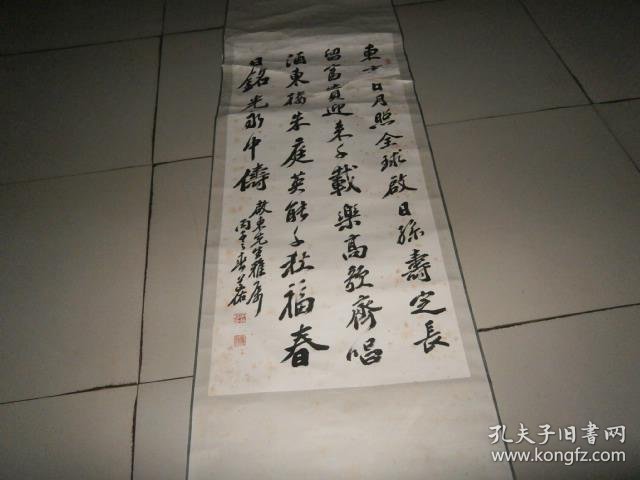 東方日月照全球啟日孫壽定長
留宮貴迎来千載樂高歌齊唱
酒東 朱庭英能千秋福春
日銘光永中儔
啟東先生雅屬
丙 春
孔夫子旧書网
www.kongfz.com